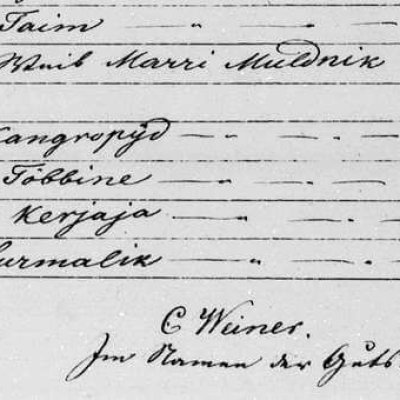 Taim — " — . —
Weib Marri Muldnik
Kangropüd — " — . —
Többine — " — . —
Kerjaja — " — . —
urmalik — " — .
C Weiner.
Im Namen der Guts